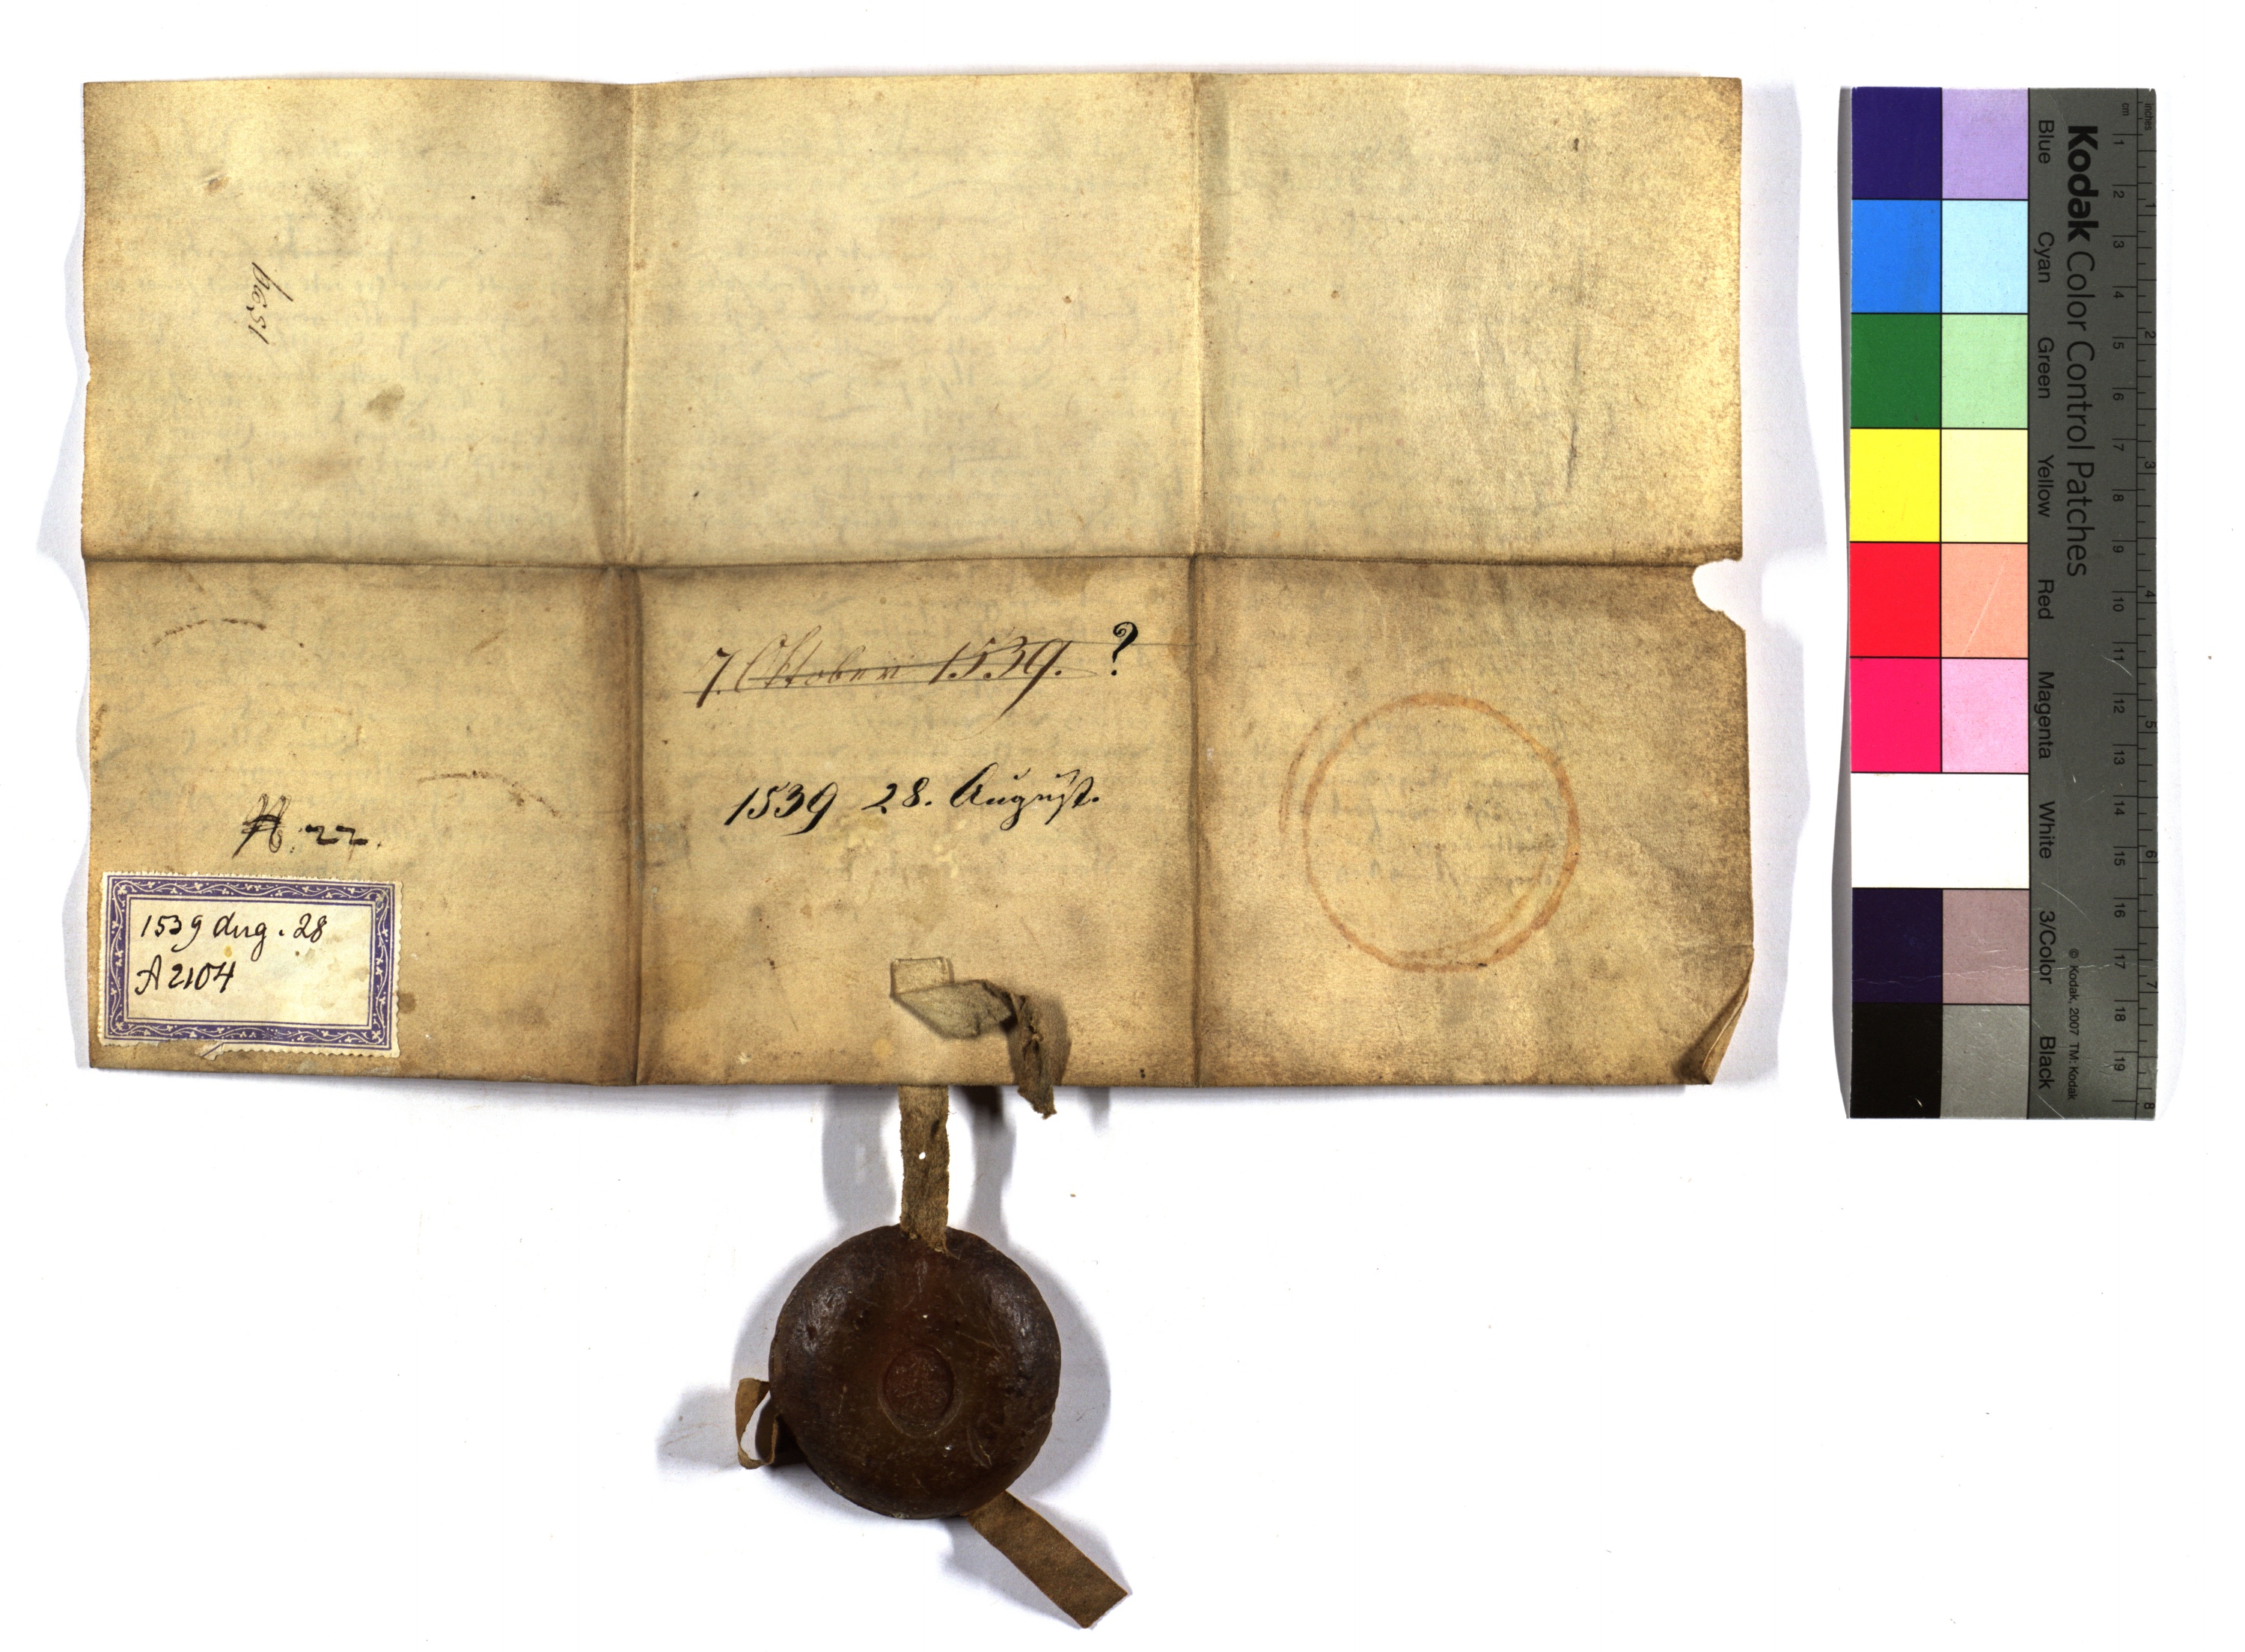 1539
7. Oktober 1539. ?
1539 28. August.
22.
1539 Aug. 28
A 2104
Kodak Color Control Patches
Blue Cyan Green Yellow Red Magenta White 3/Color Black
© Kodak, 2007 TM: Kodak
inches
cm
1 2 3 4 5 6 7 8 9 10 11 12 13 14 15 16 17 18 19
1 2 3 4 5 6 7 8